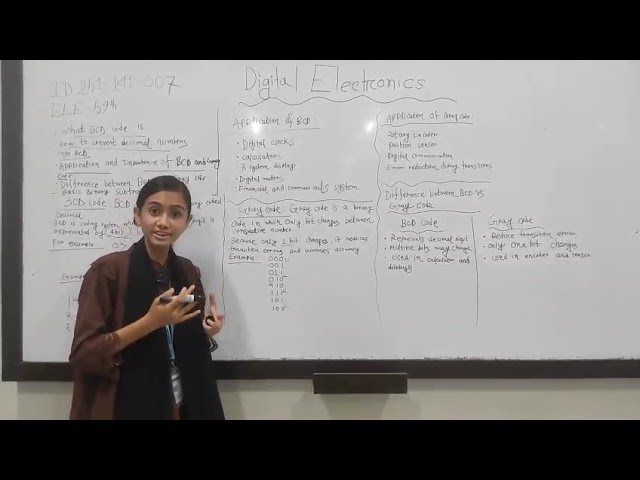 Digital Electronics
ID 251-141-007
EEE-59th
- What BCD code is
- How to convert decimal numbers
into BCD
- Application and Importance of BCD and Gray
- Difference between
- Basic binary
BCD code BCD
Decimal
BCD is coding system
4 bit
For example
Application of BCD:
• Digital clocks
• Calculators
• 7 system display
• Digital meters
Financial and system
Gray code Gray code is a binary
code in which only bit changes between
consecutive number
Because only 1 bit changes, it reduces
transition errors and increases accuracy
Example: 000
001
011
010
110
111
101
100
Application of Gray code:
Rotary Encoder
Position sensor
Digital communication
Error reduction during transitions
Difference between BCD vs
Gray code
BCD Code
• Represents decimal digit
• Multiple bits may change
• Used in calculators and
displays
Gray code
• Reduce transition errors
• only one bit changes
• used in encoder and sensor